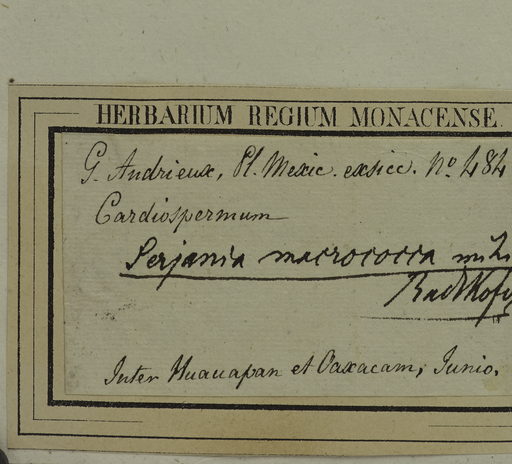 HERBARIUM REGIUM MONACENSE.
G. Andrieux, Pl. Mexic. exsicc. No. 484
Cardiospermum
Serjania macrococca mihi
Radlkofer
Inter Huauapan et Oaxacam, Junio.